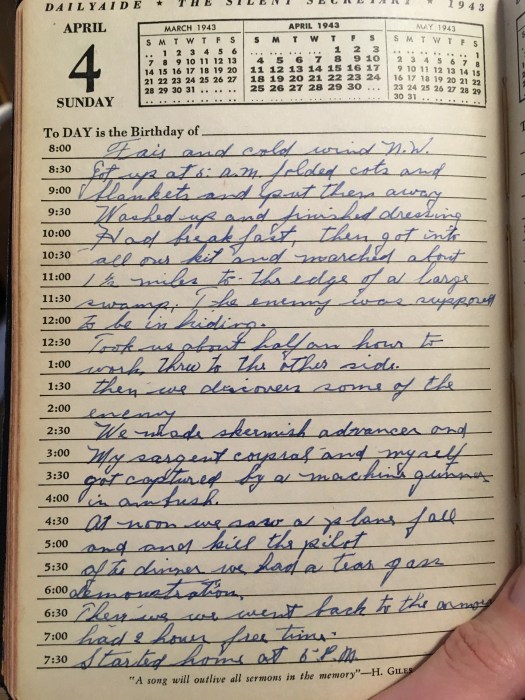 DAILYAIDE ★ THE SILENT SECRETARY ★ 1943
APRIL
4
SUNDAY
MARCH 1943
S M T W T F S
.. 1 2 3 4 5 6
7 8 9 10 11 12 13
14 15 16 17 18 19 20
21 22 23 24 25 26 27
28 29 30 31 .. .. ..
APRIL 1943
S M T W T F S
.. .. .. .. 1 2 3
4 5 6 7 8 9 10
11 12 13 14 15 16 17
18 19 20 21 22 23 24
25 26 27 28 29 30 ..
MAY 1943
S M T W T F S
.. .. .. .. .. .. 1
2 3 4 5 6 7 8
9 10 11 12 13 14 15
16 17 18 19 20 21 22
23 24 25 26 27 28 29
30 31 .. .. .. .. ..
To DAY is the Birthday of
8:00 Fair and cold wind N.W.
8:30 Got up at 5: a.m. folded cots and
9:00 blankets and put them away
9:30 Washed up and finished dressing
10:00 Had breakfast, then got into
10:30 all our kit and marched about
11:00 1½ miles to the edge of a large
11:30 swamp. The enemy was supposed
12:00 to be in hiding.
12:30 Took us about half an hour to
1:00 work threw to the other side.
1:30 then we discovers some of the
2:00 enemy
2:30 We made skermish advances and
3:00 My sargent corpral and myself
3:30 got captured by a machine gunner
4:00 in ambush.
4:30 At noon we saw a plane fall
5:00 and and kill the pilot
5:30 dinner we had a tear gass
6:00 demonstration.
6:30 Then we we went back to the
7:00 had 2 hours free time.
7:30 Started home at 5 P.M.
"A song will outlive all sermons in the memory"—H. GILES